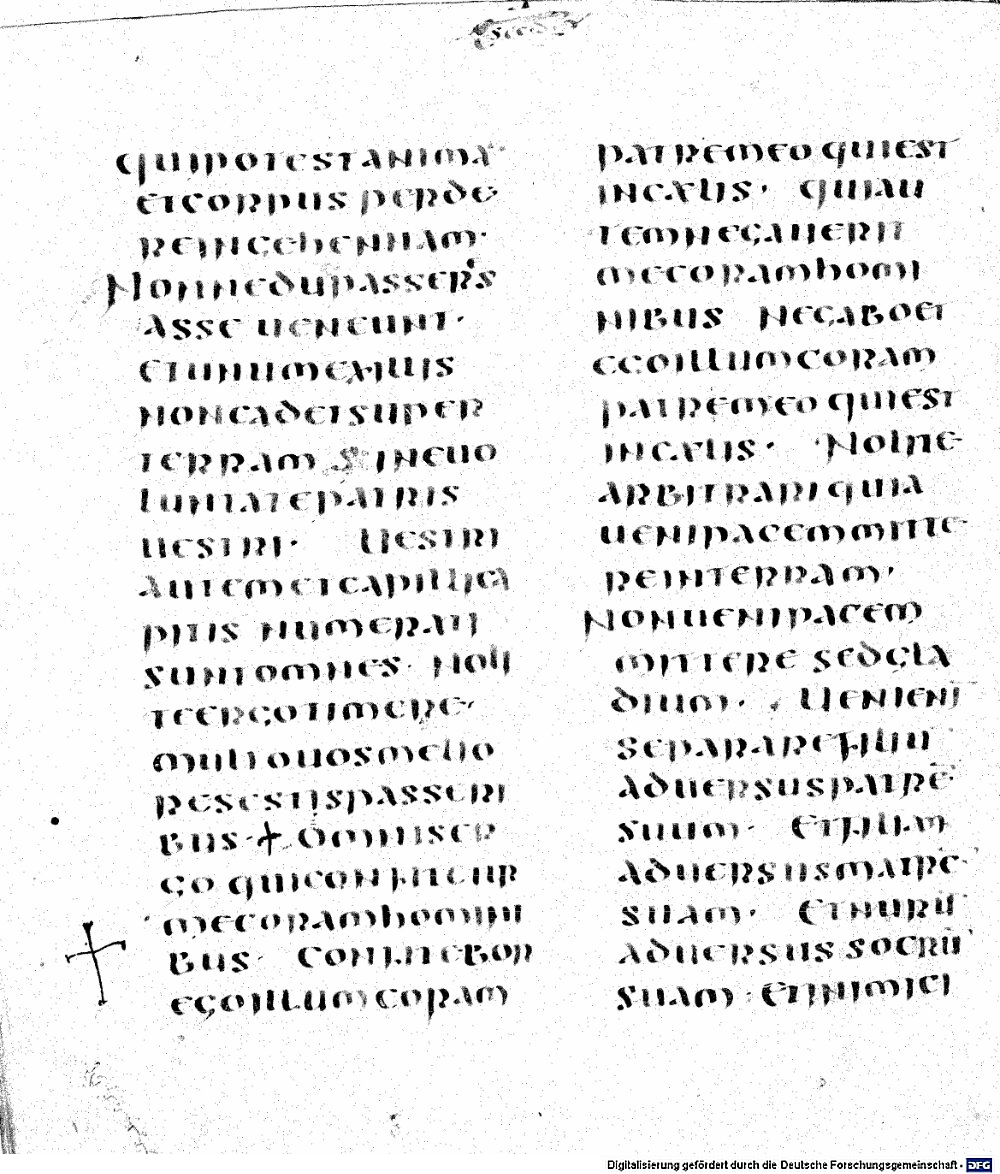 secd
qui potest anima
et corpus perde
re in gehennam·
Nonne du passer's
asse ueneunt·
et unum ex illis
non cadet super
terram s· ine uo
luntate patris
uestri· Uestri
autem et capilli ca
pitis numerati
sunt omnes· Noli
te ergo timere·
multo uos melio
res estis passeri
bus· + Omnis er
go qui confitetur
me coram homini
bus· confitebor
ego illum coram
patre meo qui est
in caelis· qui au
tem negauerit
me coram homi
nibus negabo et
ego illum coram
patre meo qui est
in caelis· Nolite
arbitrari quia
ueni pacem mitte
re in terram·
Non ueni pacem
mittere sed gla
dium· Ueni eni
separare filiu
aduersus patre
suum· Et filiam
aduersus matre
suam· Et nurū
aduersus socrū
suam· Et inimici
Digitalisierung gefördert durch die Deutsche Forschungsgemeinschaft - DFG